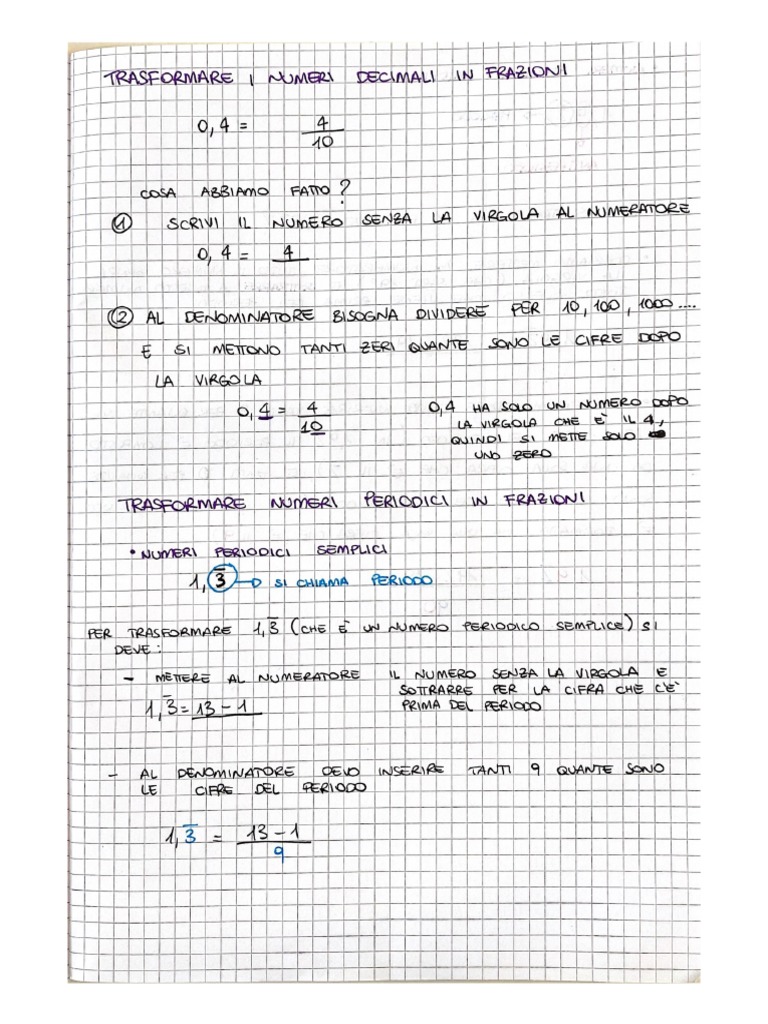 TRASFORMARE I NUMERI DECIMALI IN FRAZIONI
0,4 = 4/10
COSA ABBIAMO FATTO?
① SCRIVI IL NUMERO SENZA LA VIRGOLA AL NUMERATORE
0,4 = 4
② AL DENOMINATORE BISOGNA DIVIDERE PER 10, 100, 1000....
E SI METTONO TANTI ZERI QUANTE SONO LE CIFRE DOPO
LA VIRGOLA
0,4 = 4/10
0,4 HA SOLO UN NUMERO DOPO
LA VIRGOLA CHE E' IL 4,
QUINDI SI METTE SOLO
UNO ZERO
TRASFORMARE NUMERI PERIODICI IN FRAZIONI
• NUMERI PERIODICI SEMPLICI
1,3̅ → SI CHIAMA PERIODO
PER TRASFORMARE 1,3̅ (CHE E' UN NUMERO PERIODICO SEMPLICE) SI
DEVE:
- METTERE AL NUMERATORE IL NUMERO SENZA LA VIRGOLA E
SOTTRARRE PER LA CIFRA CHE C'E'
PRIMA DEL PERIODO
1,3̅ = 13 - 1
- AL DENOMINATORE DEVO INSERIRE TANTI 9 QUANTE SONO
LE CIFRE DEL PERIODO
1,3̅ = 13 - 1/9